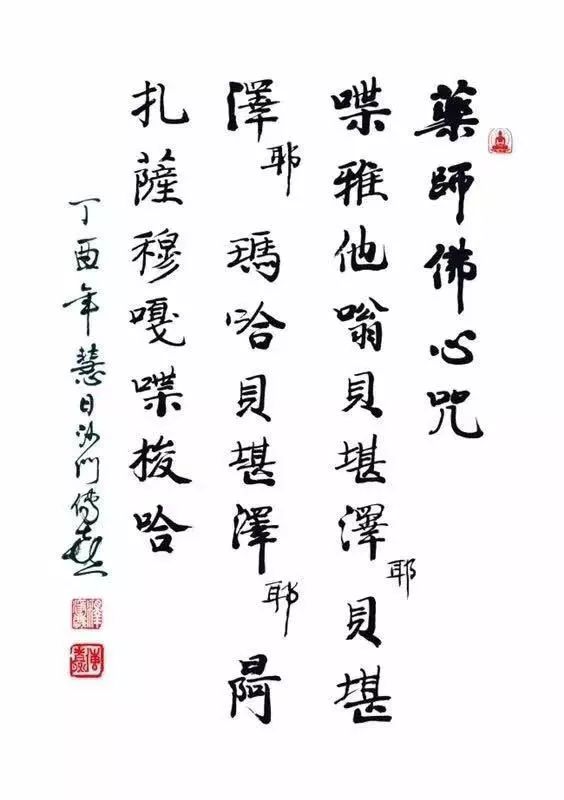 藥師佛心咒
喋雅他嗡貝堪澤耶貝堪
澤耶瑪哈貝堪澤耶
扎薩穆嘎喋梭哈
丁酉年慧日沙門傳喜